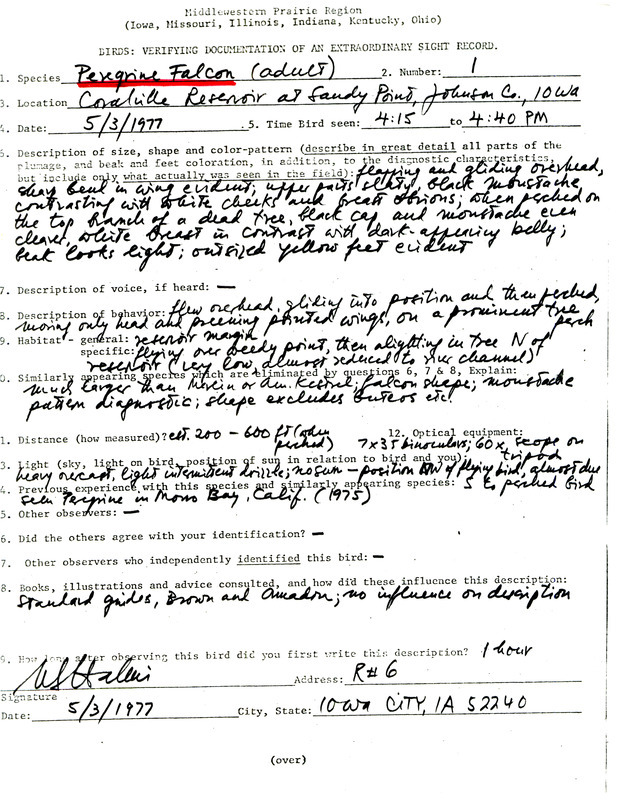 Middlewestern Prairie Region
(Iowa, Missouri, Illinois, Indiana, Kentucky, Ohio)
BIRDS: VERIFYING DOCUMENTATION OF AN EXTRAORDINARY SIGHT RECORD.
1. Species Peregrine Falcon (adult) 2. Number: 1
3. Location Coralville Reservoir at Sandy Point, Johnson Co., IOWA
4. Date: 5/3/1977 5. Time Bird seen: 4:15 to 4:40 PM
6. Description of size, shape and color-pattern (describe in great detail all parts of the
plumage, and beak and feet coloration, in addition, to the diagnostic characteristics,
but include only what actually was seen in the field): flapping and gliding overhead,
sharp bend in wing evident; upper parts slaty, black moustache
contrasting with white cheeks and breast obvious; when perched on
the top branch of a dead tree, black cap and moustache even
clearer, white breast in contrast with dark-appearing belly;
beak looks light; outsized yellow feet evident
7. Description of voice, if heard: —
8. Description of behavior: flew overhead, gliding into position and then perched,
moving only head and preening pointed wings, on a prominent tree
perch
9. Habitat - general: reservoir margin
specific: flying over weedy point, then alighting in tree N of
reservoir (very low almost reduced to river channel)
0. Similarly appearing species which are eliminated by questions 6, 7 & 8, Explain:
much larger than Merlin or Am. Kestrel; falcon shape; moustache
pattern diagnostic; shape excludes buteos etc.
1. Distance (how measured)? est. 200 - 600 ft (when perched) 12. Optical equipment:
7x35 binoculars; 60x scope on
tripod
3. Light (sky, light on bird, position of sun in relation to bird and you);
heavy overcast, light intermittent drizzle; no sun - position NW of flying bird, almost due
S to perched bird
4. Previous experience with this species and similarly appearing species:
seen Peregrine in Morro Bay, Calif. (1975)
5. Other observers: —
6. Did the others agree with your identification? —
7. Other observers who independently identified this bird: —
8. Books, illustrations and advice consulted, and how did these influence this description:
Standard guides, Brown and Amadon; no influence on description
9. How long after observing this bird did you first write this description? 1 hour
Address: R#6
Signature
Date: 5/3/1977 City, State: IOWA CITY, IA 52240
(over)